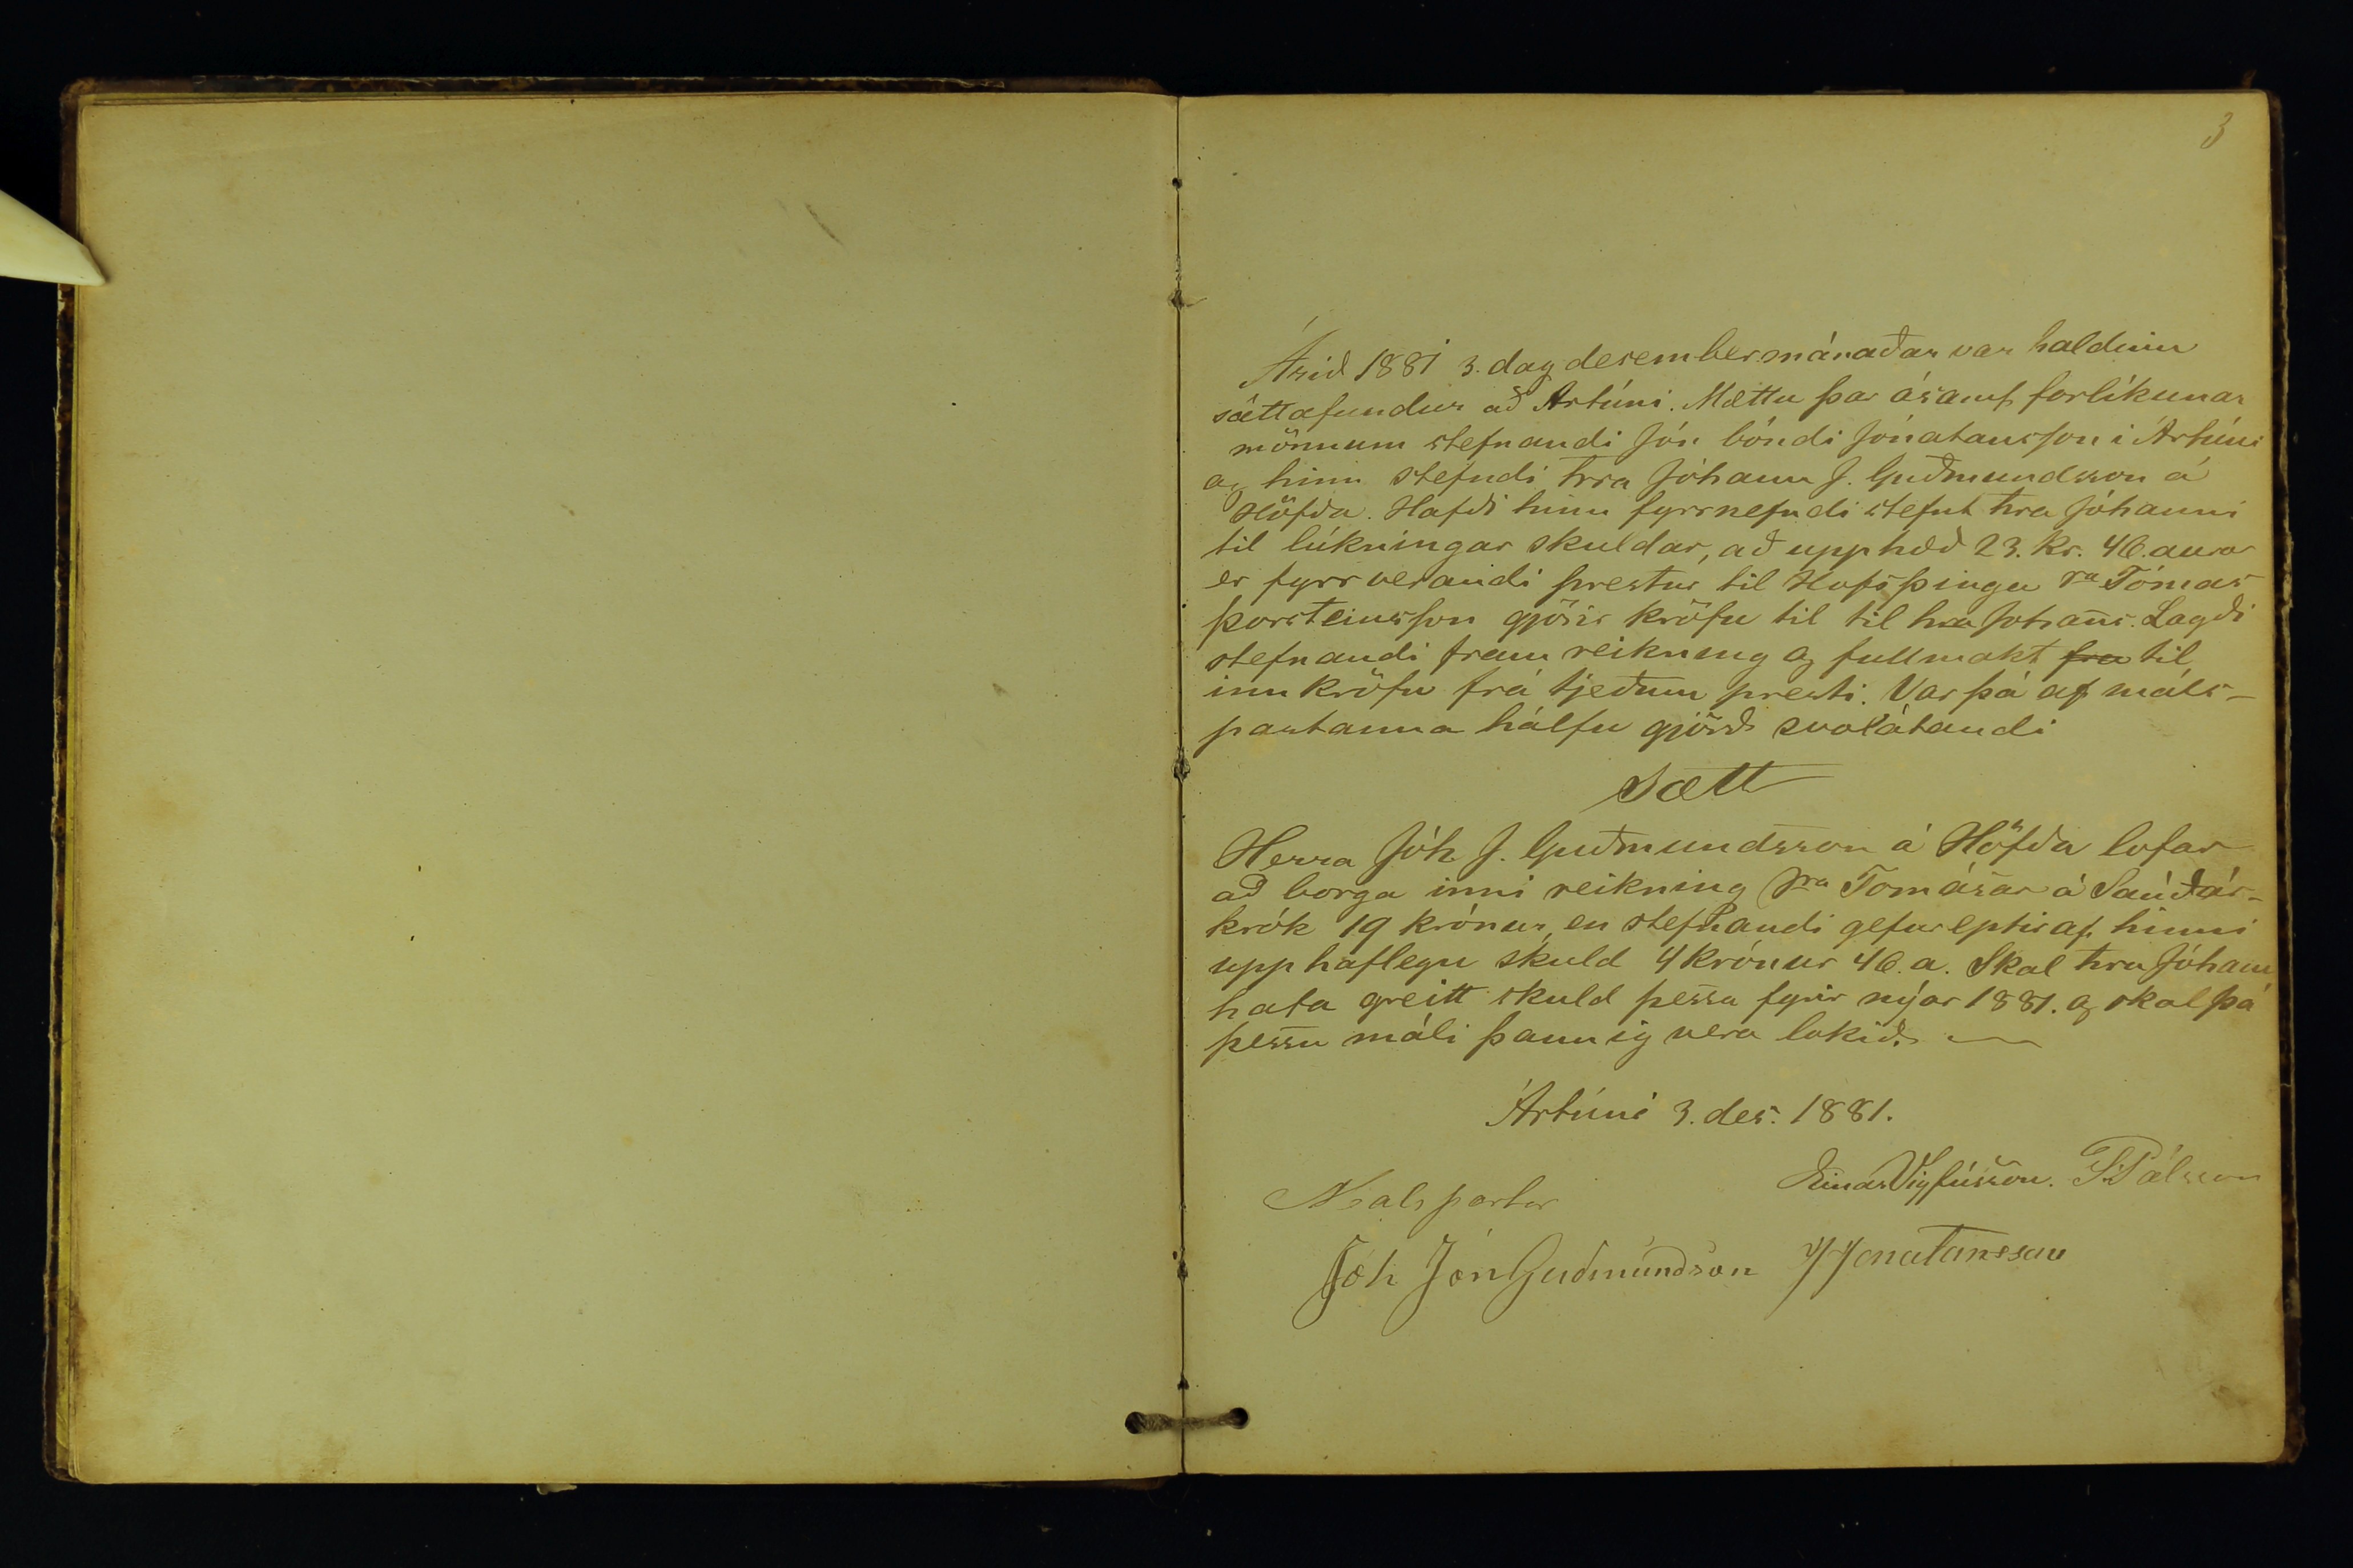 3
Árið 1881 3. dag desembermánaðar var haldinn
sáttafundur að Ártúni. Mættu þar ásamt forlíkunar
mönnum stefnandi Jón bóndi Jónatansson í Ártúni
og hinn stefndi hra Jóhann J. Guðmundsson á
Höfða. Hafði hinn fyrrnefndi stefnt hra Jóhanni
til lúkningar skuldar, að upphæð 23. Kr. 46. aurar
er fyrrverandi prestur til Hofsþinga sra Tómas
Þorsteinsson gjörir kröfu til til hra Johans. Lagði
stefnandi fram reikning og fullmakt fra til
innkröfu frá tjeðum presti. Var þá af máls-
partanna hálfu gjörð svolátandi
Sætt
Herra Jóh. J. Guðmundsson á Höfða lofar
að borga inni reikning sra Tomásar á Sauðár-
krók 19 krónur, en stefnandi gefur eptir af hinni
upphaflegu skuld 4 krónur 46. a. Skal hra Jóhann
hafa greitt skuld þessa fyrir nýar 1881. og skal þá
þessu máli þannig vera lokið.
Ártúni 3. des. 1881.
Einar Vigfússon. Pálsson
Malspartar
Jóh Jón Guðmundson J Jonatansson